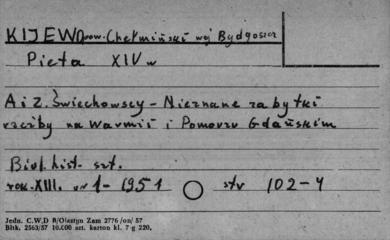 KIJEWO pow. Chełmiński woj Bydgoszcz
Pieta XIV w
A i Z. Świechowscy - Nieznane zabytki
rzeźby na Warmii i Pomorzu Gdańskim
Biul. hist. szt.
rok. XIII. nr 1 - 1951 str 102-4
Jedn. C.W.D R/Olsztyn Zam 2776/on/57
Błtk. 2563/57 10.000 szt. karton kl. 7 g 220.